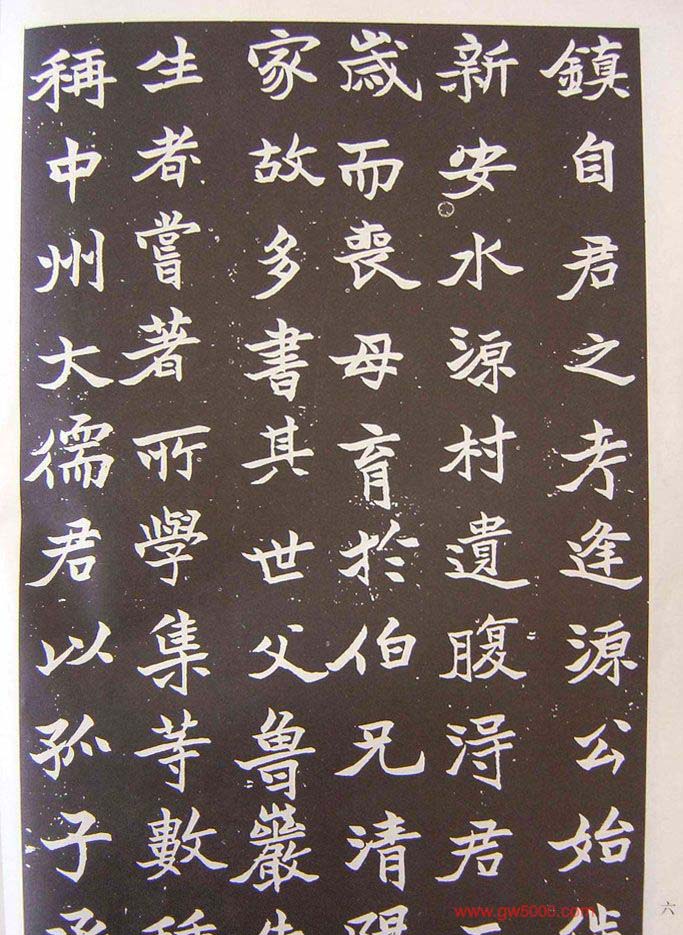 鎮自君之考逢源公始
新安水源村遺腹得君
歲而喪母育於伯兄清
家故多書其世父魯巖
生者嘗著所學集等數
稱中州大儒君以孤子
六
www.gw5005.com